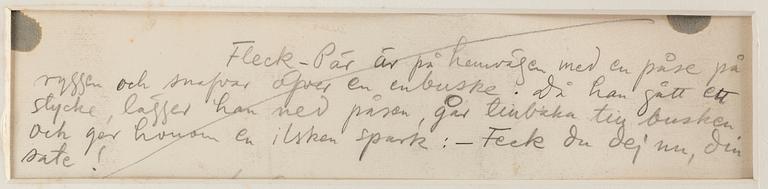 Fleck-Pär är på hemvägen med en påse på
ryggen och snafvar öfver en enbuske. Då han gått ett
stycke, lägger han ned påsen, går tillbaka till busken
och ger honom en ilsken spark: – Feck du dej nu, din
sate!